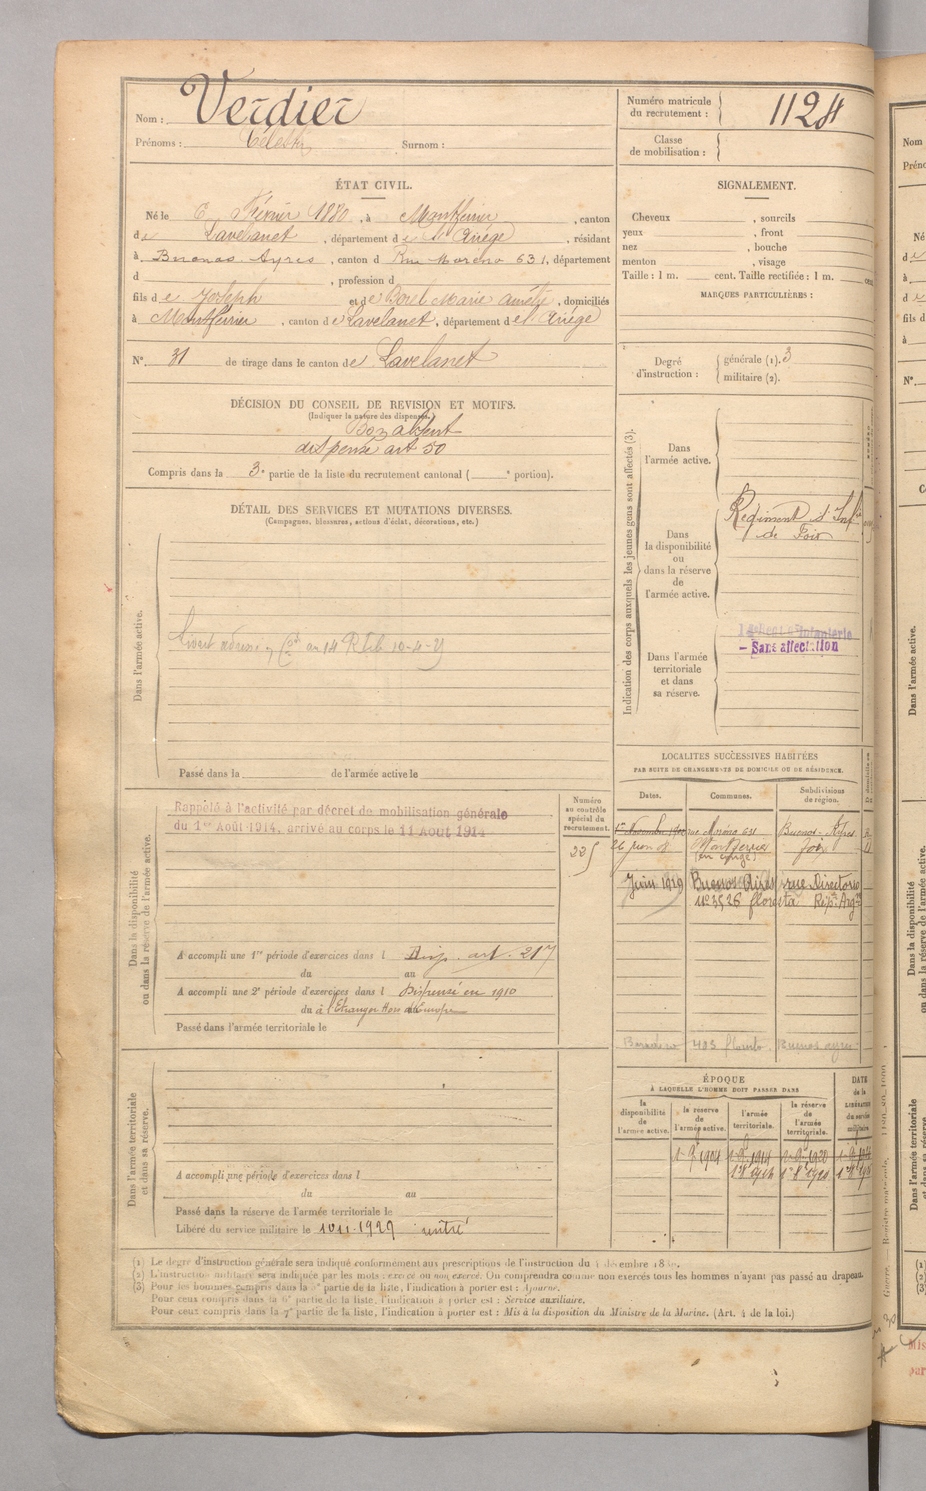 Nom : Verdier
Prénoms : Célestin Surnom :
Numéro matricule
du recrutement : 1124
Classe
de mobilisation :
ÉTAT CIVIL.
Né le 6 Février 1880, à Montferrier, canton
de Lavelanet, département de l'Ariège, résidant
à Buenos-Ayres, canton d Rue Moreno 631, département
d , profession d
fils de Joseph et de Borel Marie Amélie, domiciliés
à Montferrier, canton de Lavelanet, département de l'Ariège
N° 31 de tirage dans le canton de Lavelanet
SIGNALEMENT.
Cheveux , sourcils
yeux , front
nez , bouche
menton , visage
Taille : 1 m. cent. Taille rectifiée : 1 m. cent.
MARQUES PARTICULIÈRES :
Degré
d'instruction :
générale (1). 3
militaire (2).
DÉCISION DU CONSEIL DE REVISION ET MOTIFS.
(Indiquer la nature des dispenses.)
Bon absent
dispensé art 50
Compris dans la 3e partie de la liste du recrutement cantonal ( e portion).
DÉTAIL DES SERVICES ET MUTATIONS DIVERSES.
(Campagnes, blessures, actions d'éclat, décorations, etc.)
Dans l'armée active.
Passé dans la de l'armée active le
Indication des corps auxquels les jeunes gens sont affectés (3).
Dans
l'armée active.
Dans
la disponibilité
ou
dans la réserve
de
l'armée active.
Régiment d'Infie
de Foix
Dans l'armée
territoriale
et dans
sa réserve.
- Sans affectation
Dans la disponibilité
ou dans la réserve de l'armée active.
Rappelé à l'activité par décret de mobilisation générale
du 1er Août 1914, arrivé au corps le 11 Août 1914
Numéro
au contrôle
spécial du
recrutement.
225
A accompli une 1re période d'exercices dans l Disp. art. 217
du au
A accompli une 2e période d'exercices dans l Dispensé en 1910
du à l'Etranger Hors d'Europe
Passé dans l'armée territoriale le
LOCALITÉS SUCCESSIVES HABITÉES
PAR SUITE DE CHANGEMENTS DE DOMICILE OU DE RÉSIDENCE.
Dates. Communes. Subdivisions
de région.
1er Novembre rue Moréno 631 Buenos-Ayres
26 juin 08 Montferrier Foix
(en congé)
Juin 1919 Buenos Aires rue Directorio
n° 3526 floresta Rép. Argne
Buenos ayres
Dans l'armée territoriale
et dans sa réserve.
A accompli une période d'exercices dans l
du au
Passé dans la réserve de l'armée territoriale le
Libéré du service militaire le 10 11 1929
ÉPOQUE
À LAQUELLE L'HOMME DOIT PASSER DANS
la
disponibilité
de
l'armée active.
la réserve
de
l'armée active.
l'armée
territoriale.
la réserve
de
l'armée
territoriale.
DATE
de la
LIBÉRATION
du service
militaire.
1-9bre 1904 1-9bre 1914
(1) Le degré d'instruction générale sera indiqué conformément aux prescriptions de l'instruction du 4 décembre
(2) L'instruction militaire sera indiquée par les mots : exercé ou non exercé. On comprendra comme non exercés tous les hommes n'ayant pas passé au drapeau.
(3) Pour les hommes compris dans la partie de la liste, l'indication à porter est : Ajourné.
Pour ceux compris dans la 6e partie de la liste, l'indication à porter est : Service auxiliaire.
Pour ceux compris dans la 7e partie de la liste, l'indication à porter est : Mis à la disposition du Ministre de la Marine. (Art. 4 de la loi.)